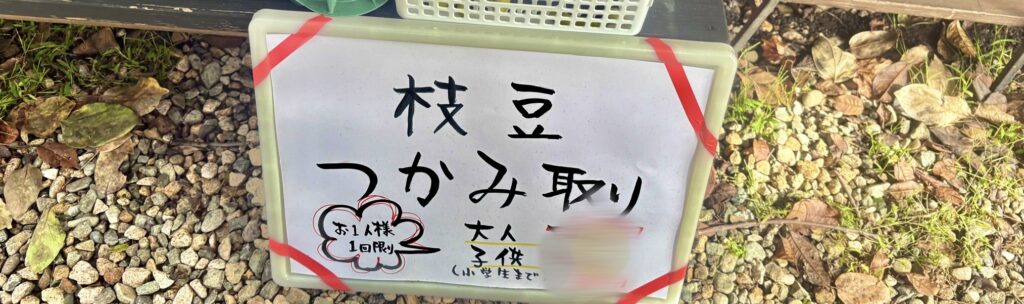 枝豆
つかみ取り
お1人様
1回限り
大人
子供
(小学生まで